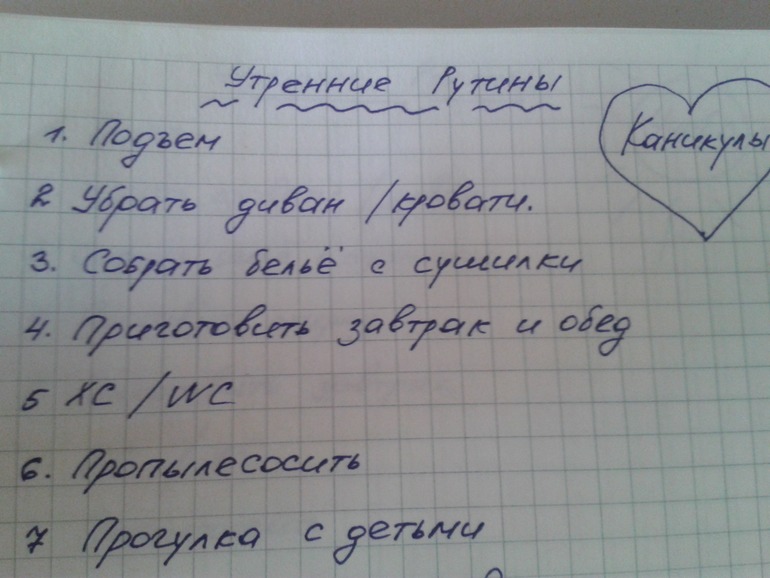 Утренние Рутины
Каникулы
1. Подъем
2 Убрать диван / кровати.
3. Собрать бельё с сушилки
4. Приготовить завтрак и обед
5 ХС / WC
6. Пропылесосить
7 Прогулка с детьми